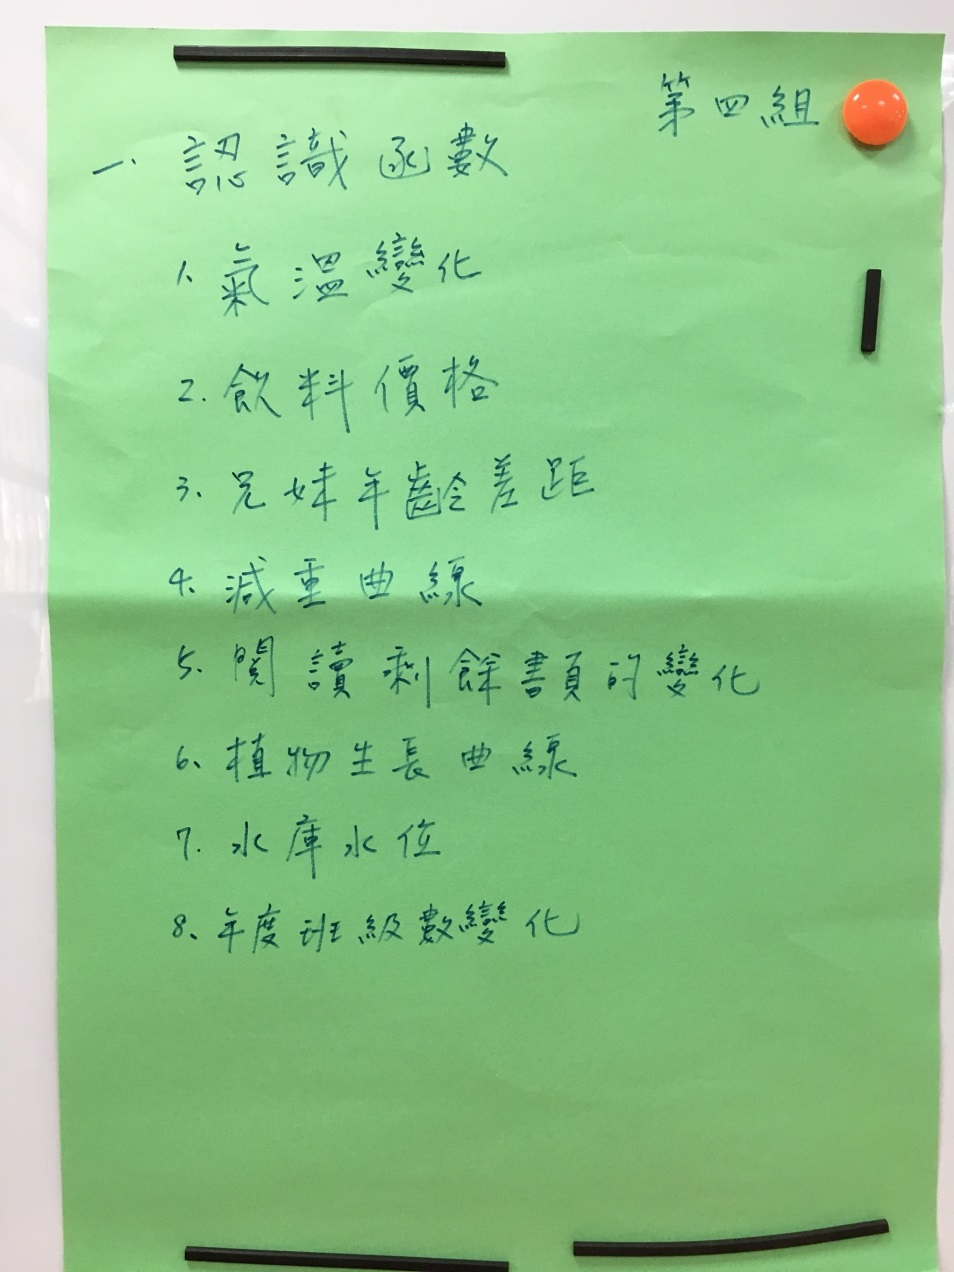 第四組
一、認識函數
1、氣溫變化
2.飲料價格
3、兄妹年齡差距
4、減重曲線
5、閱讀剩餘書頁的變化
6、植物生長曲線
7.水庫水位
8、年度班級數變化